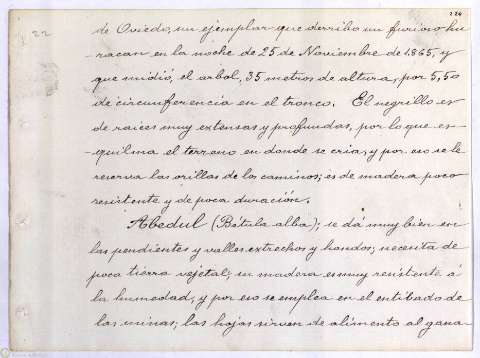 224
22
de Oviedo, un ejemplar que derribo un furioso hu-
racan en la noche de 25 de Noviembre de 1865, y
que midió, el arbol, 35 metros de altura, por 5,50
de circunferencia en el tronco. El negrillo es
de raices muy extensas y profundas, por lo que es-
quilma el terreno en donde se cria, y por eso se le
reserva las orillas de los caminos; es de madera poco
resistente y de poca duración.
Abedul (Bétula alba); se dá muy bien en
las pendientes y valles extrechos y hondos; necesita de
poca tierra vejetal; su madera es muy resistente á
la humedad, y por eso se emplea en el entibado de
las minas; las hojas sirven de alimento al gana-